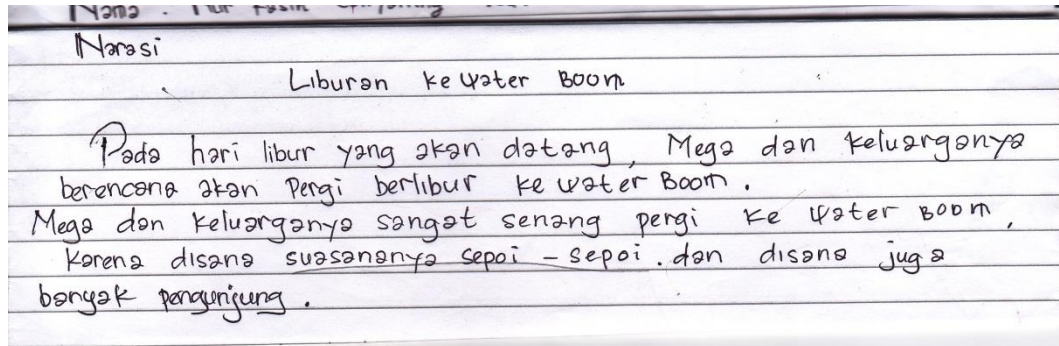 Nama : Nur
Narasi
Liburan ke Water Boom
Pada hari libur yang akan datang, Mega dan keluarganya
berencana akan pergi berlibur ke water Boom.
Mega dan keluarganya sangat senang pergi ke water Boom,
Karena disana suasananya sepoi - sepoi. dan disana juga
banyak pengunjung.